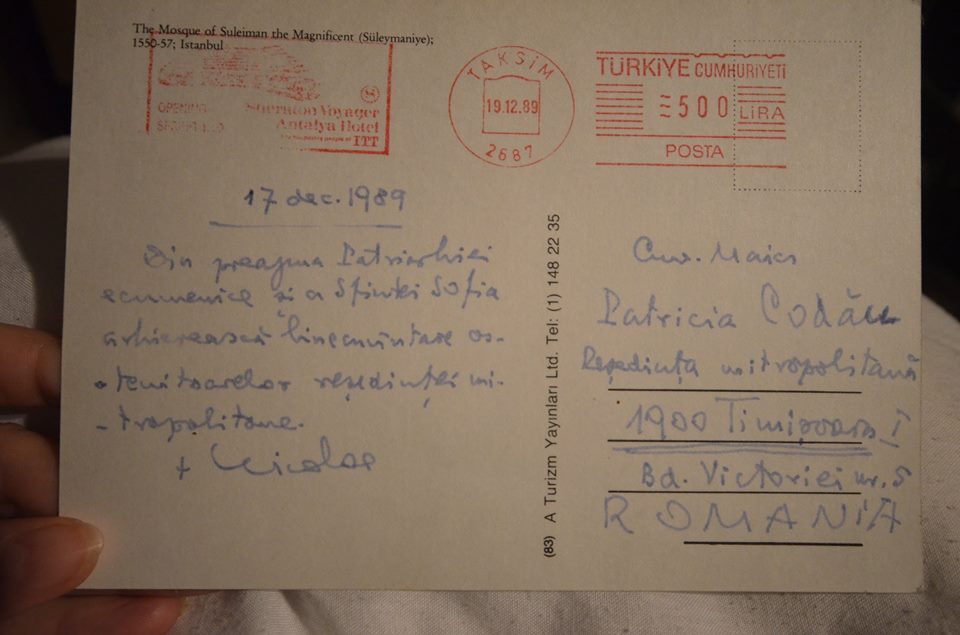 The Mosque of Suleiman the Magnificent (Süleymaniye);
1550-57; Istanbul
OPENING
Sheraton Voyager
Antalya Hotel
ITT
TAKSİM
19.12.89
2687
TÜRKİYE CUMHURİYETİ
500 LİRA
POSTA
17 dec. 1989
Din preajma Patriarhiei
ecumenice și a Sfintei Sofia
arhierească binecuvîntare os-
tenitoarelor reședinței mi-
tropolitane.
+ Nicolae
(83) A Turizm Yayınları Ltd. Tel: (1) 148 22 35
Cuv. Maica
Patricia Codău
Reședința mitropolitană
1900 Timișoara I
Bd. Victoriei nr. 5
ROMANIA